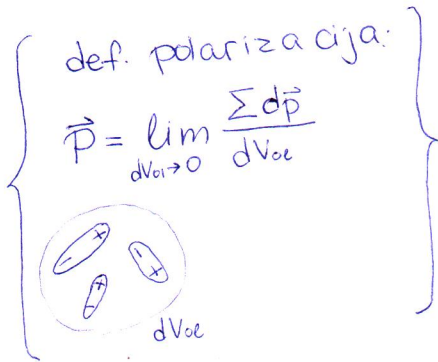 def. polarizacija:
P⃗ = lim dVol→0 Σdp⃗ / dVol
- +
- +
- +
dVol